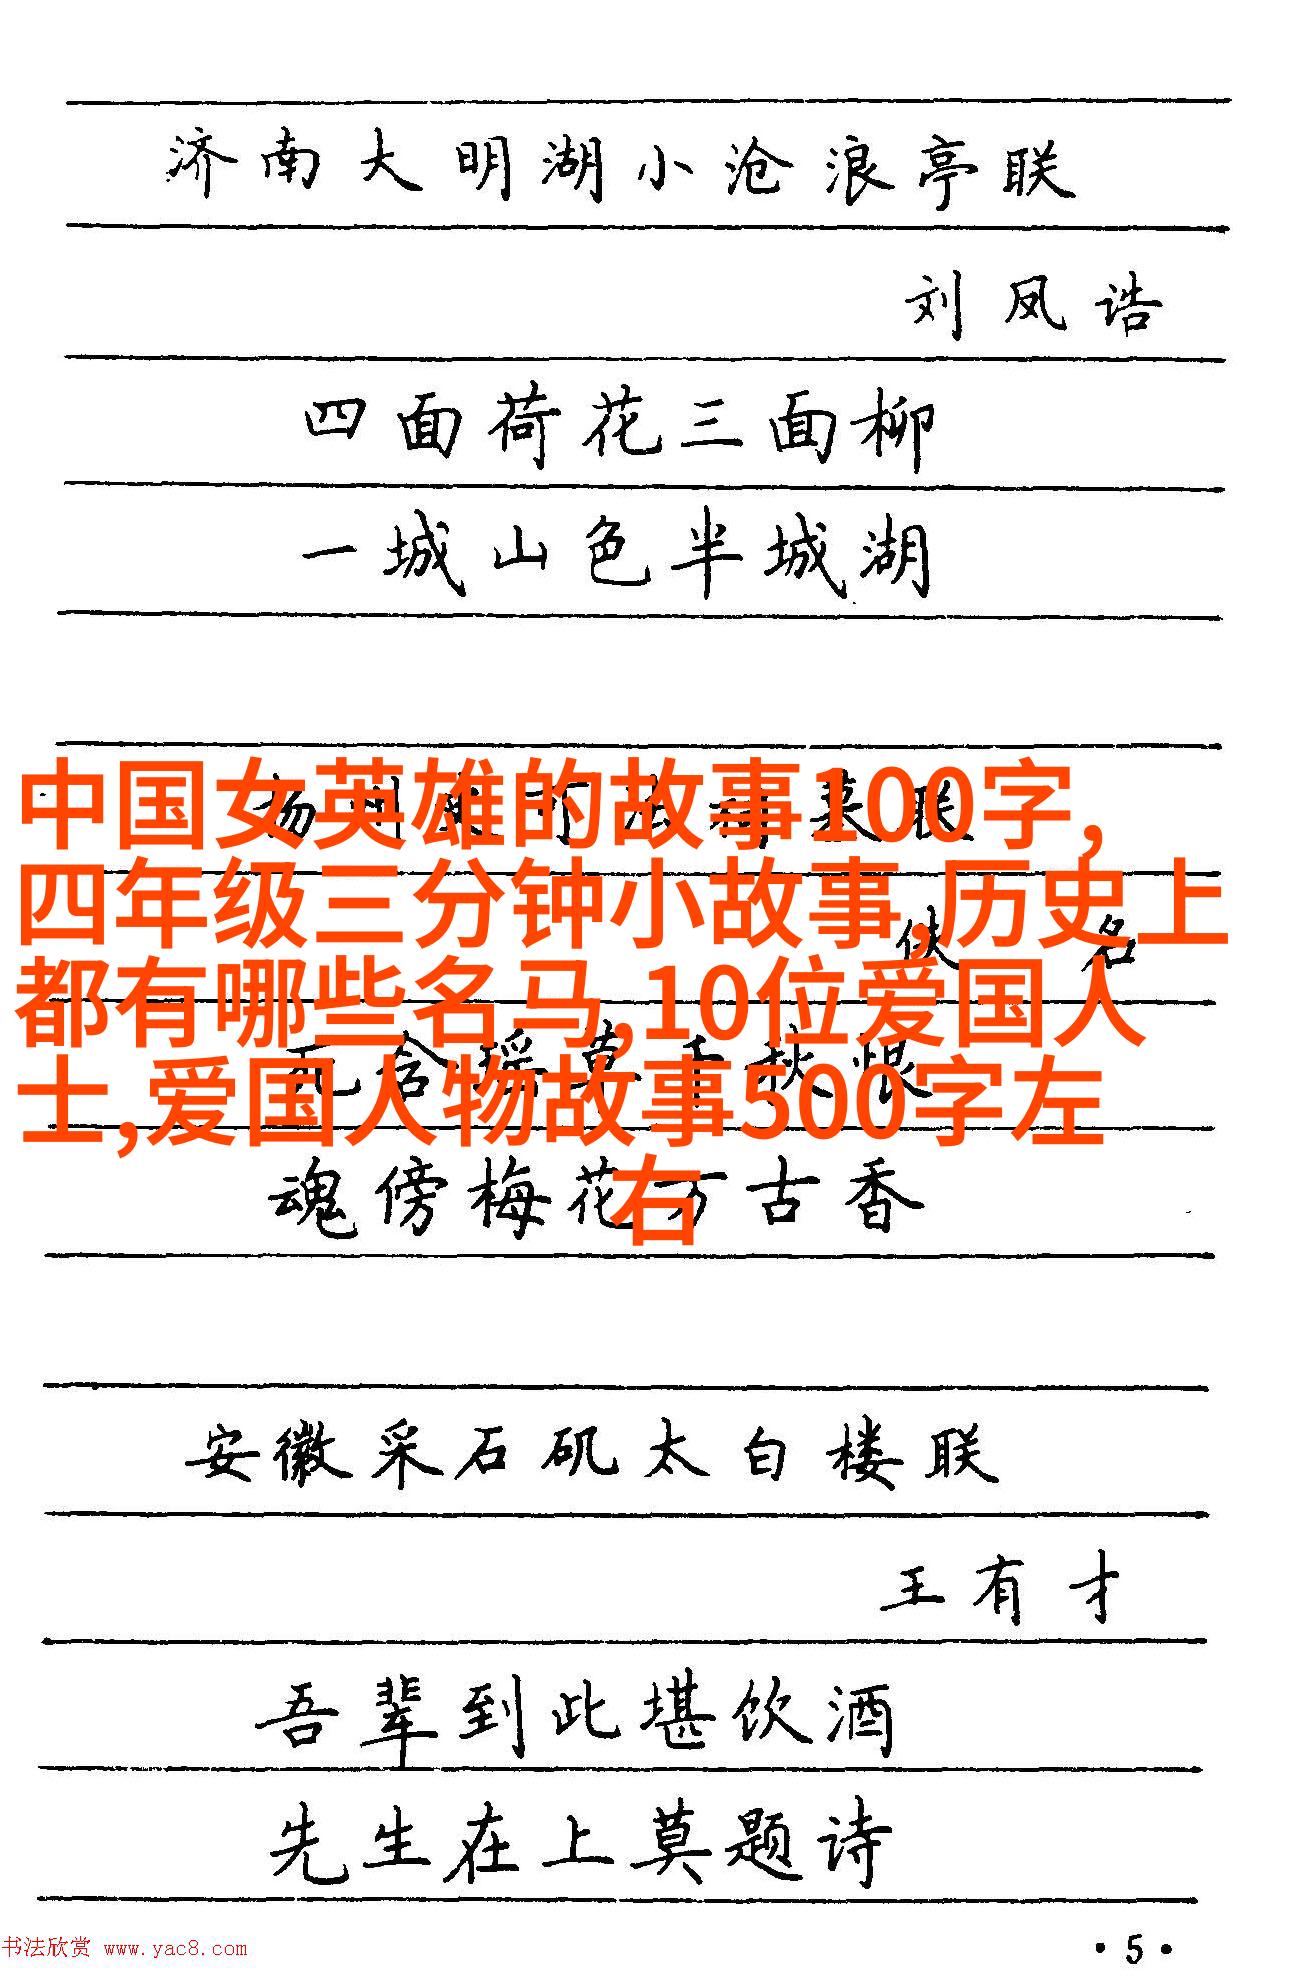 济南大明湖小沧浪亭联
刘凤诰
四面荷花三面柳
一城山色半城湖
中国女英雄的故事100字,
四年级三分钟小故事,历史上
都有哪些名马,10位爱国人
士,爱国人物故事500字左
右
联
佚名
秋恨
魂傍梅花万古香
安徽采石矶太白楼联
王有才
吾辈到此堪饮酒
先生在上莫题诗
书法欣赏 www.yac8.com
·5·